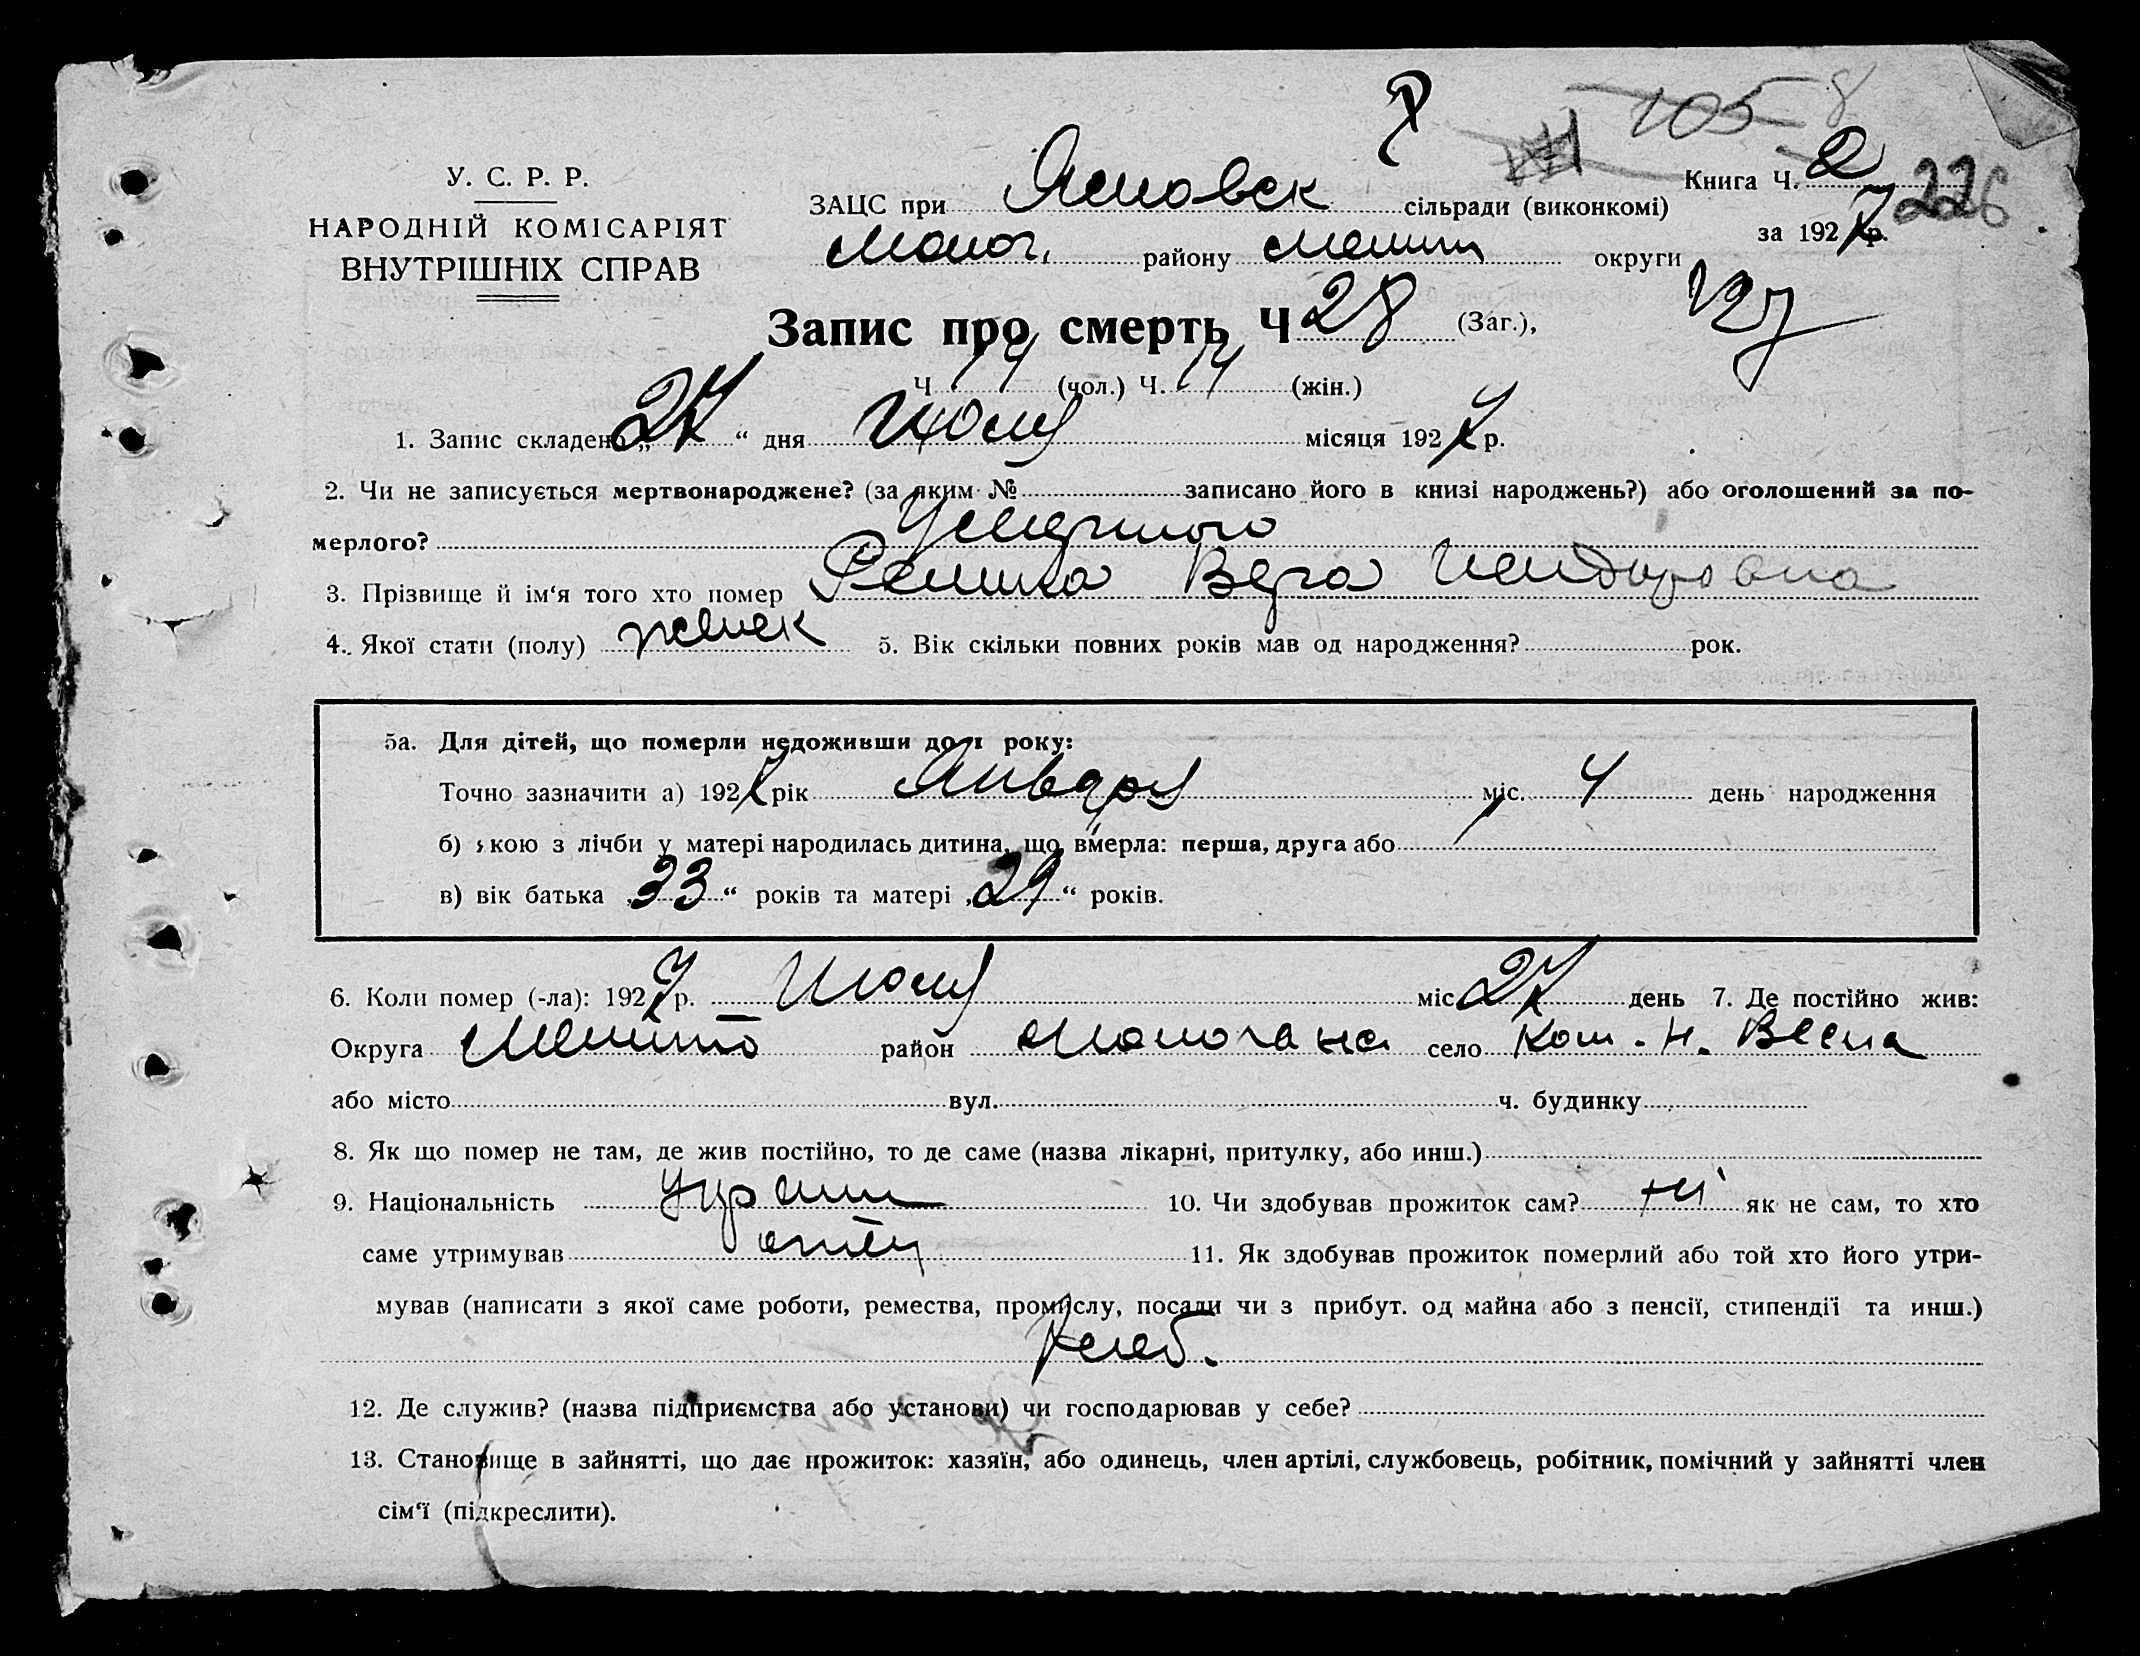 1058
У. С. Р. Р.
НАРОДНІЙ КОМІСАРІЯТ
ВНУТРІШНІХ СПРАВ
Книга Ч. 2
226
ЗАЦС при Ясновск сільради (виконкомі)
за 1927 р.
Молоч. району Мелит округи
127
Запис про смерть Ч 28 (Заг.),
Ч 14 (чол.) Ч. 14 (жін.)
1. Запис складено „24“ дня Июля місяця 1927 р.
2. Чи не записується мертвонароджене? (за яким № записано його в книзі народжень?) або оголошений за по-
мерлого? Умершого
3. Прізвище й ім‘я того хто помер Вера
4. Якої стати (полу) женск 5. Вік скільки повних років мав од народження? рок.
5а. Для дітей, що померли недоживши до 1 року:
Точно зазначити а) 1927 рік Января міс. 4 день народження
б) якою з лічби у матері народилась дитина, що вмерла: перша, друга або
в) вік батька „33“ років та матері „29“ років.
6. Коли помер (-ла): 1927 р. Июля міс. 24 день 7. Де постійно жив:
Округа Мелито район село Кол. Н. Весна
або місто вул. ч. будинку
8. Як що помер не там, де жив постійно, то де саме (назва лікарні, притулку, або инш.)
9. Національність 10. Чи здобував прожиток сам? ні як не сам, то хто
саме утримував отец 11. Як здобував прожиток померлий або той хто його утри-
мував (написати з якої саме роботи, ремества, промислу, посади чи з прибут. од майна або з пенсії, стипендії та инш.)
хлеб.
12. Де служив? (назва підприємства або установи) чи господарював у себе?
13. Становище в зайнятті, що дає прожиток: хазяїн, або одинець, член артілі, службовець, робітник, помічний у зайнятті член
сім‘ї (підкреслити).